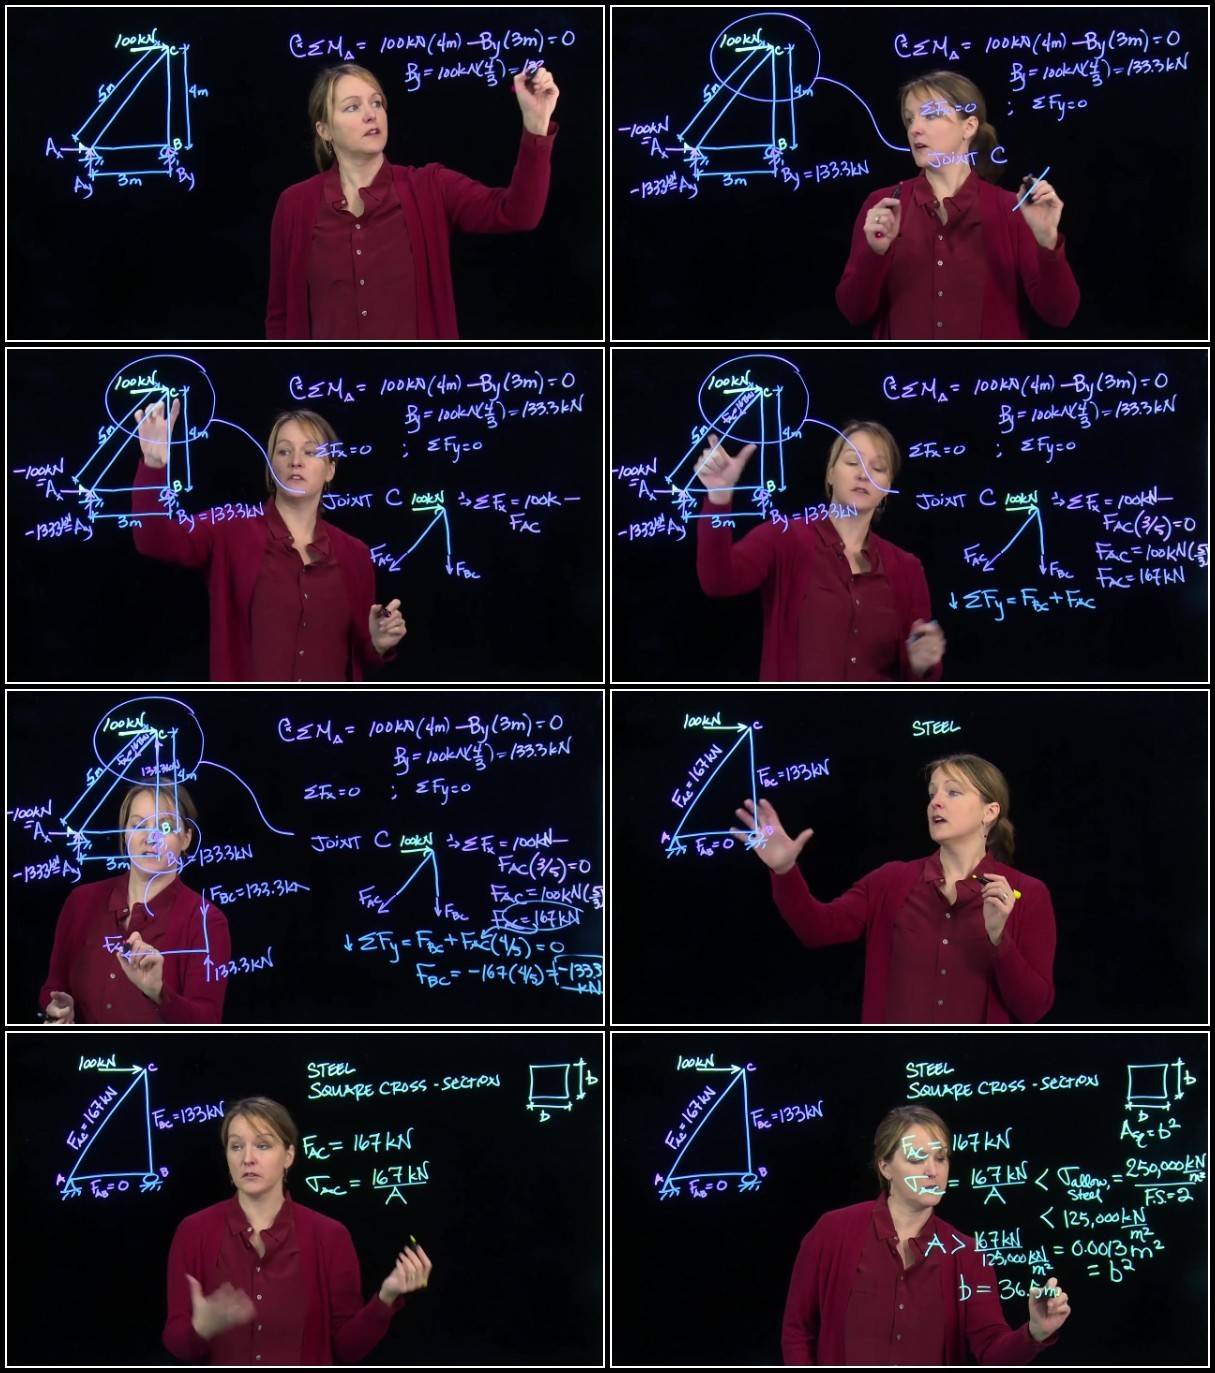 100kN
C
5m
4m
A
B
3m
Ax
Ay
By
ΣM_A = 100kN(4m) - By(3m) = 0
By = 100kN(4/3) = 133
100kN
C
5m
4m
-100kN
= Ax
B
3m
-133.3kN = Ay
By = 133.3kN
ΣM_A = 100kN(4m) - By(3m) = 0
By = 100kN(4/3) = 133.3kN
ΣFx = 0 ; ΣFy = 0
JOINT C
100kN
C
5m
4m
-100kN
= Ax
B
3m
-133.3kN = Ay
By = 133.3kN
ΣM_A = 100kN(4m) - By(3m) = 0
By = 100kN(4/3) = 133.3kN
ΣFx = 0 ; ΣFy = 0
JOINT C 100kN → ΣFx = 100k -
F_AC
F_AC
F_BC
100kN
C
5m
F_AC = 167kN
4m
-100kN
= Ax
B
3m
-133.3kN = Ay
By = 133.3kN
ΣM_A = 100kN(4m) - By(3m) = 0
By = 100kN(4/3) = 133.3kN
ΣFx = 0 ; ΣFy = 0
JOINT C 100kN → ΣFx = 100kN -
F_AC(3/5) = 0
F_AC = 100kN(5/3)
F_AC = 167kN
F_AC
F_BC
↓ ΣFy = F_BC + F_AC
100kN
C
5m
F_AC = 167kN
133.3kN
4m
-100kN
= Ax
B
3m
-133.3kN = Ay
By = 133.3kN
F_BC = 133.3k
133.3kN
ΣM_A = 100kN(4m) - By(3m) = 0
By = 100kN(4/3) = 133.3kN
ΣFx = 0 ; ΣFy = 0
JOINT C 100kN → ΣFx = 100kN -
F_AC(3/5) = 0
F_AC = 100kN(5/3)
F_AC = 167kN
F_AC
F_BC
↓ ΣFy = F_BC + F_AC(4/5) = 0
F_BC = -167(4/5) = -133.3
kN
100kN
C
F_AC = 167kN
F_BC = 133kN
A
B
F_AB = 0
STEEL
100kN
C
F_AC = 167kN
F_BC = 133kN
A
B
F_AB = 0
STEEL
SQUARE CROSS-SECTION
b
b
F_AC = 167kN
σ_AC = 167kN/A
100kN
C
F_AC = 167kN
F_BC = 133kN
A
B
F_AB = 0
STEEL
SQUARE CROSS-SECTION
b
b
A_sq = b²
F_AC = 167kN
σ_AC = 167kN/A < σ_allow, steel = 250,000 kN/m² / F.S. = 2
< 125,000 kN/m²
A > 167kN / 125,000 kN/m² = 0.0013m²
= b²
b = 36.5m